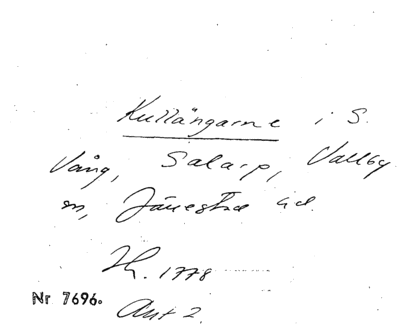 Kullängarne i S.
Vång, Salarp, Vallby
sn, Järrestad hd.
Hr. 1778
Nr 7696.
Akt 2.